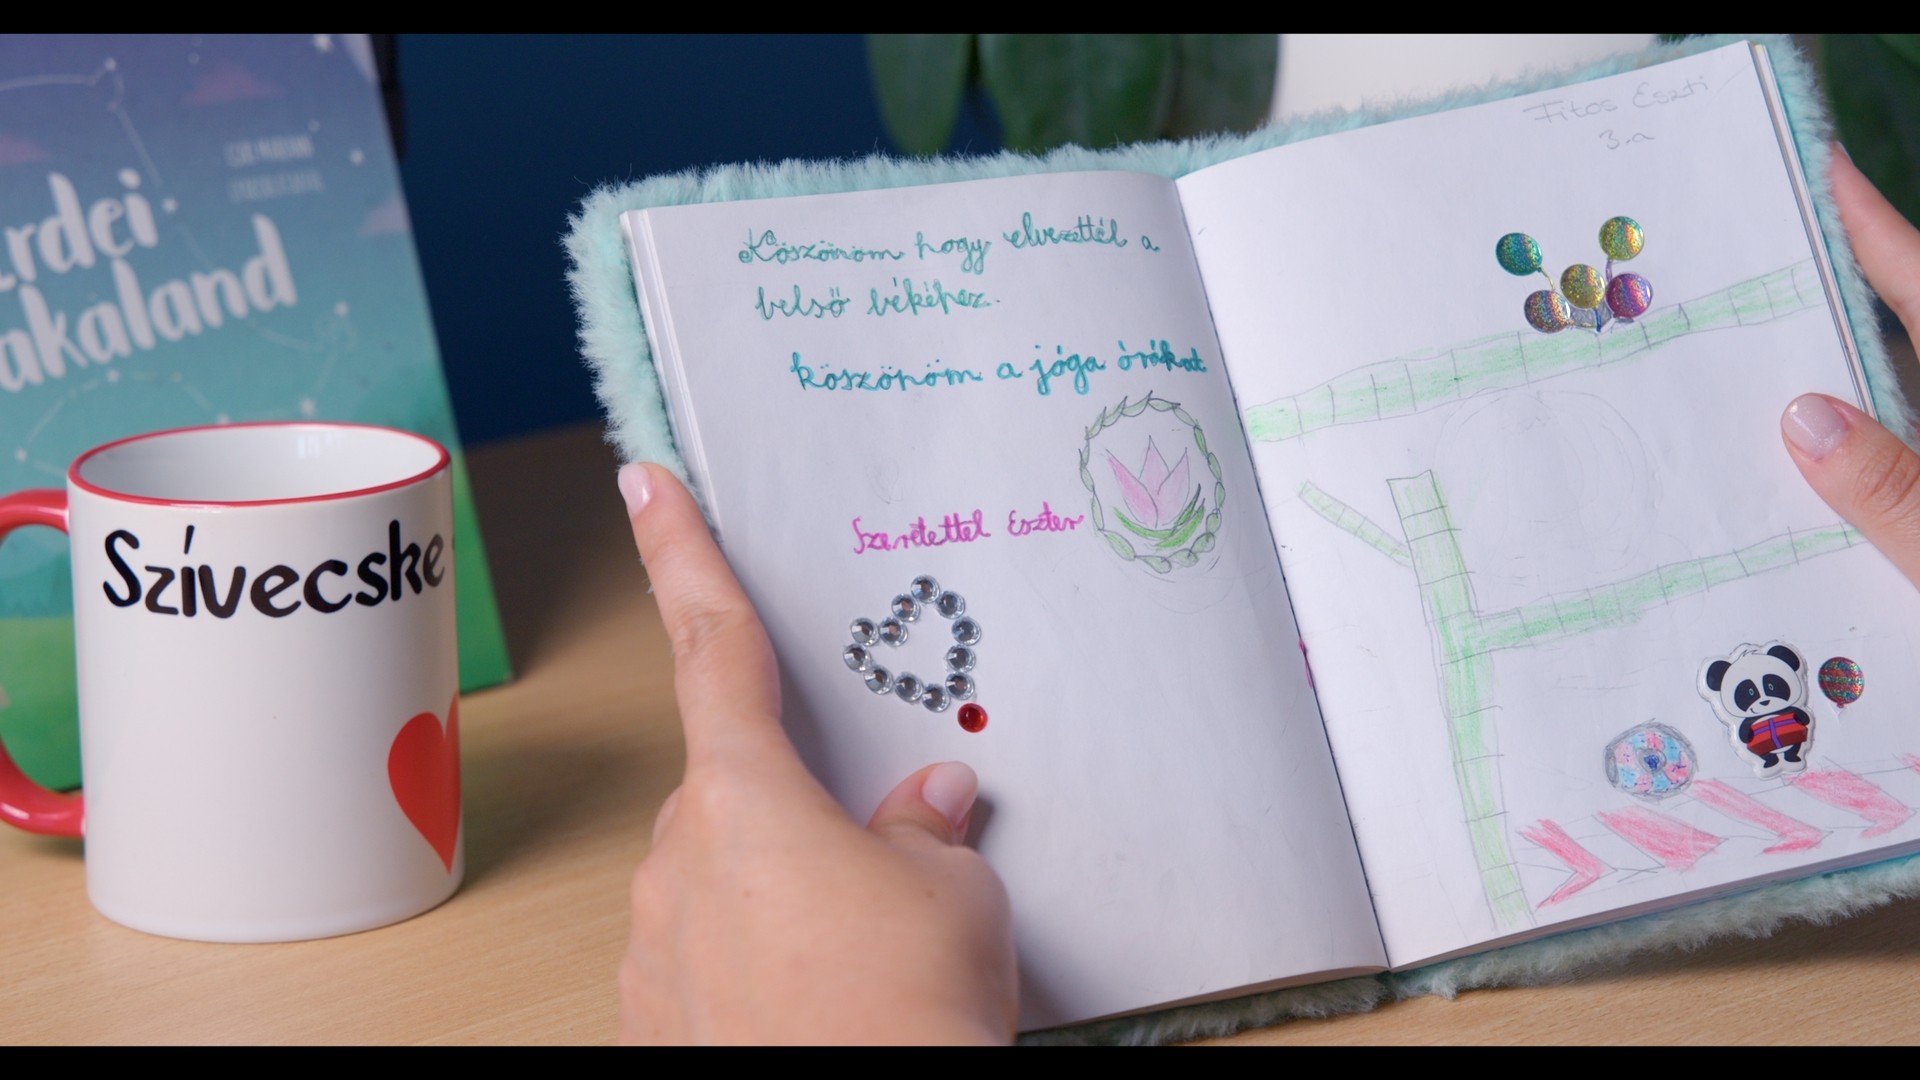 rdei
akaland
Szívecske
Köszönöm hogy elvezettél a
belső békéhez.
köszönöm a jóga órákat
Szeretettel Eszter
Fitos Eszti
3.a